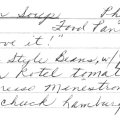 Soup Ph
Food Pan
ove it!"
Style Beans, w/
Rotel tomat
resso Minestron
chuck hamburg